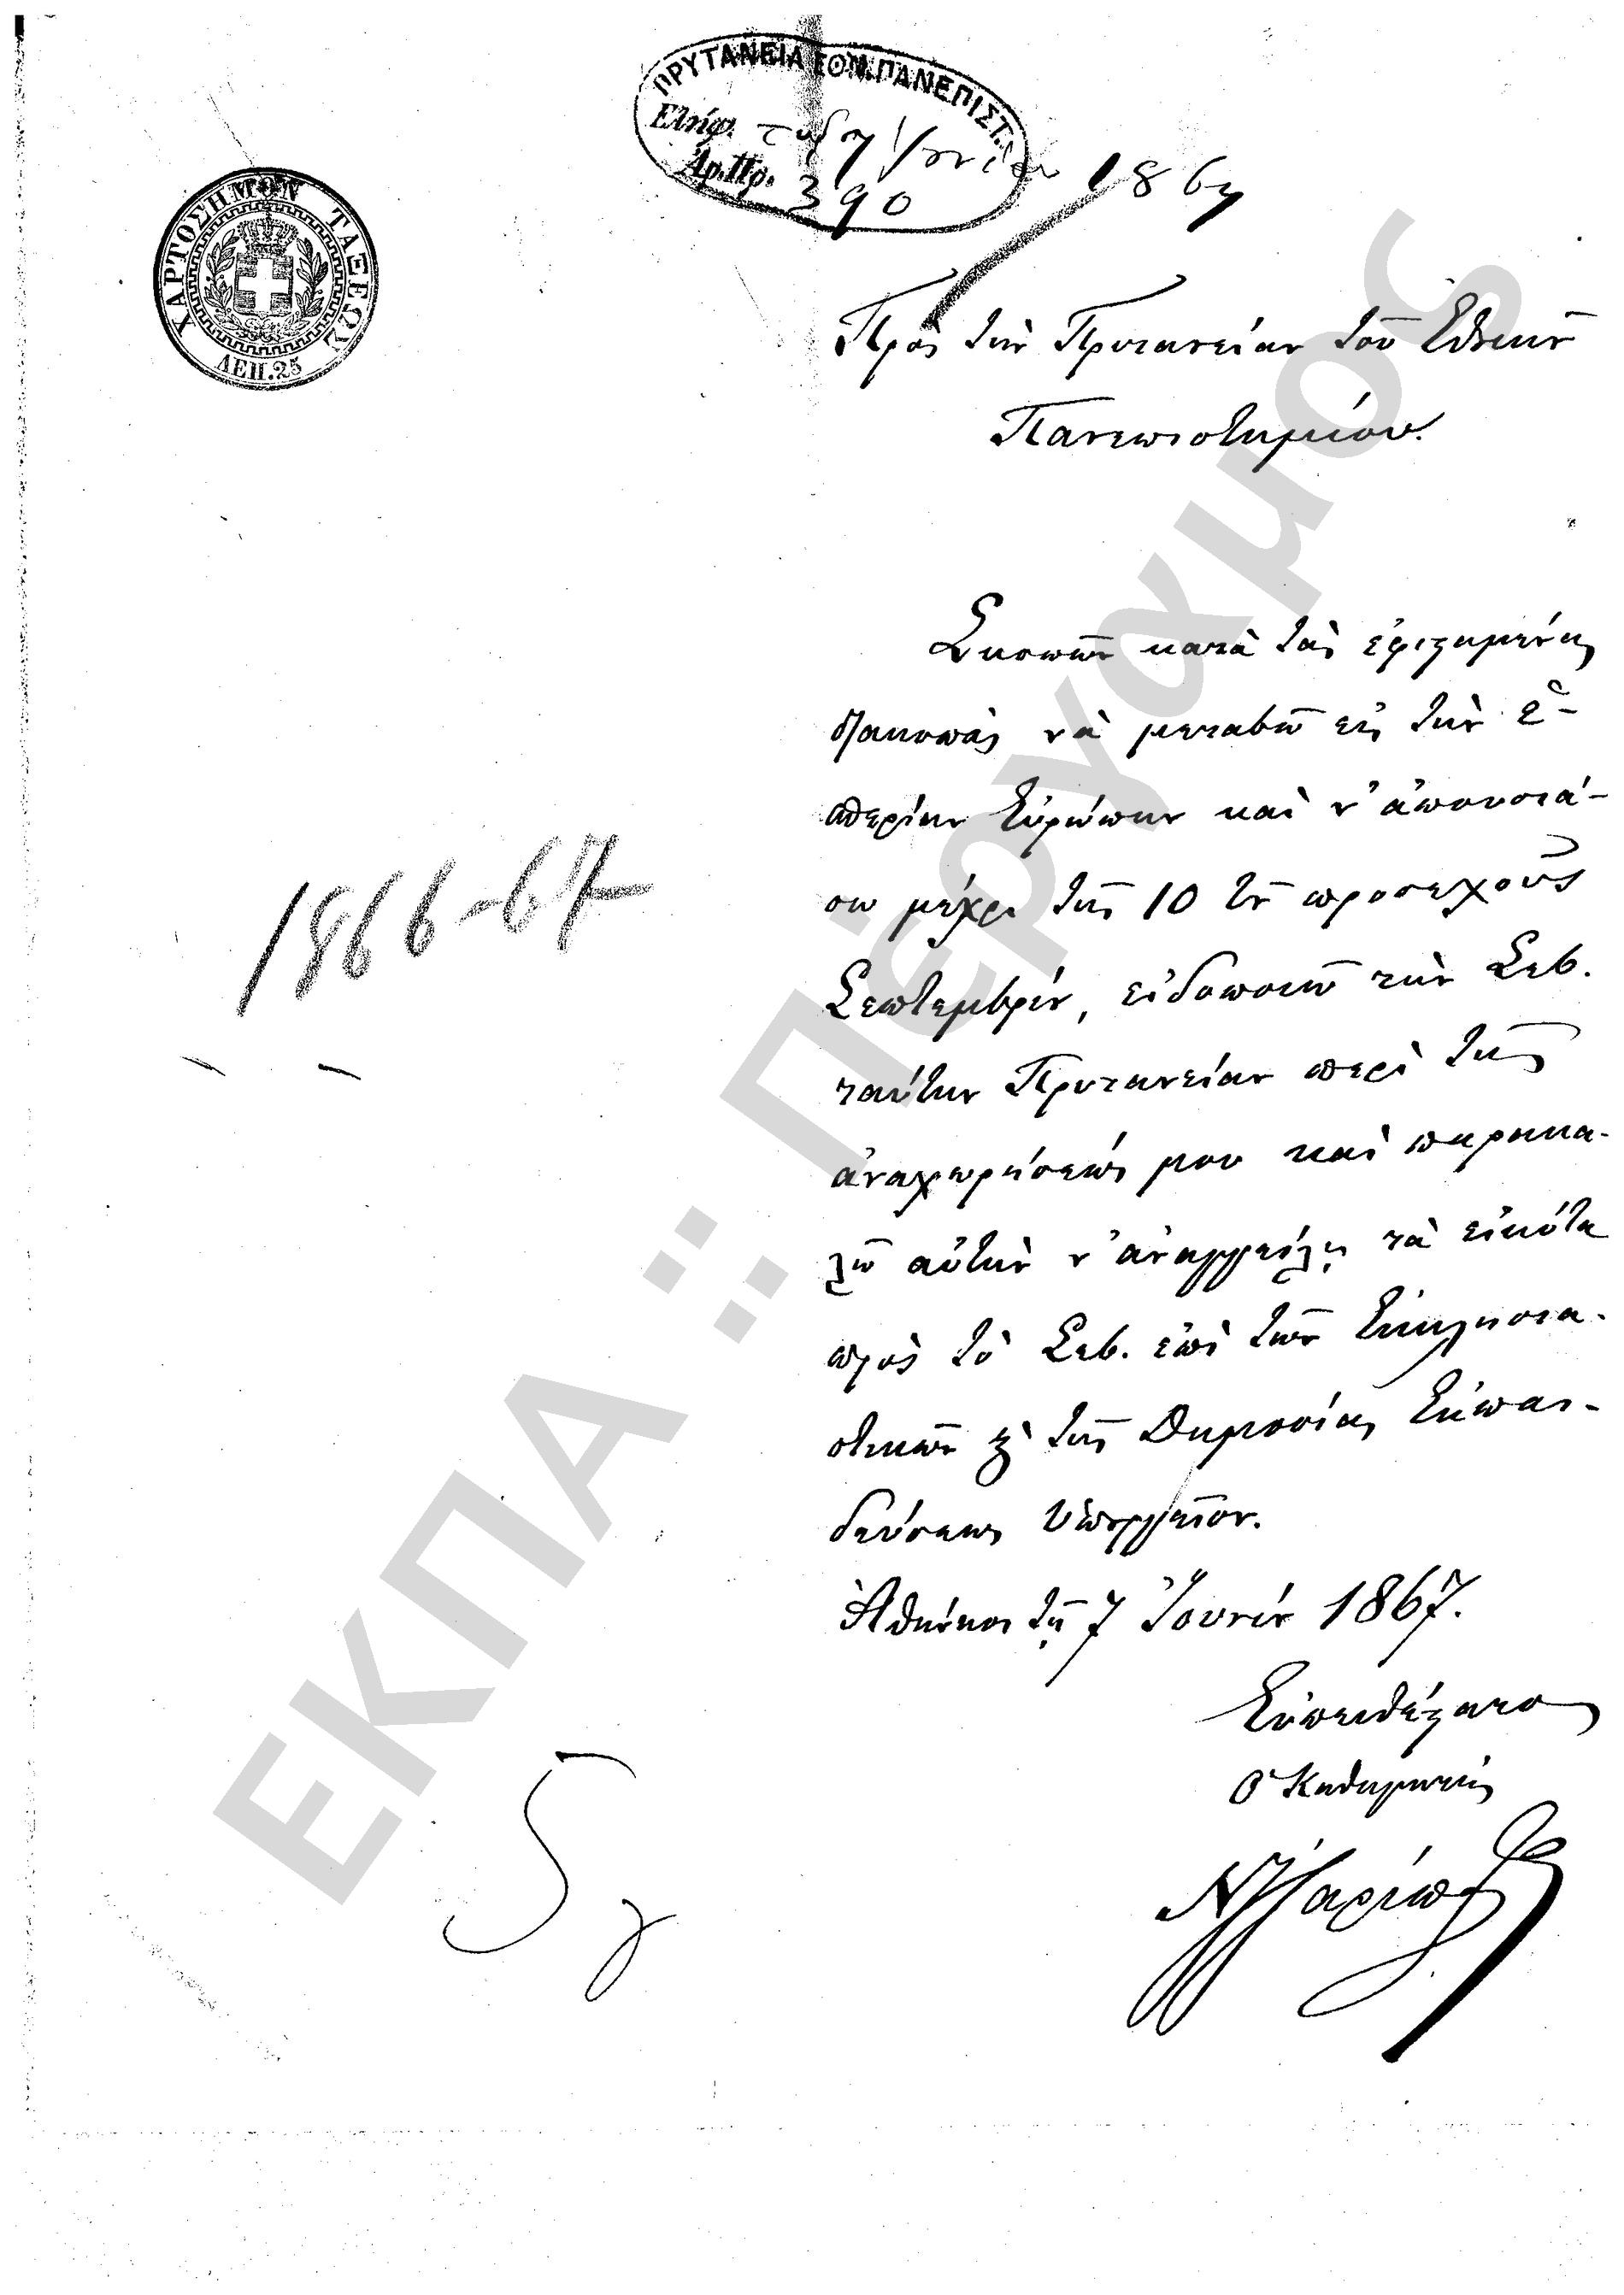 ΠΡΥΤΑΝΕΙΑ ΕΘΝ. ΠΑΝΕΠΙΣΤ.
Ελήφ. τῇ 7 Ἰουνίου 1867
Ἀρ. Πρ. 390
ΧΑΡΤΟΣΗΜΟΝ ΤΑΞΕΩΣ
ΛΕΠ. 25
Πρὸς τὴν Πρυτανείαν τοῦ Ἐθνικοῦ
Πανεπιστημίου.
Σκοπῶν κατὰ τὰς
διακοπὰς νὰ μεταβῶ εἰς τὴν
Εὐρώπην καὶ ν' ἀπουσιά-
σω μέχρι τῆς 10 τοῦ προσεχοῦς
Σεπτεμβρίου, εἰδοποιῶ τὴν Σεβ.
ταύτην Πρυτανείαν περὶ τῆς
ἀναχωρήσεώς μου καὶ παρακα-
λῶ αὐτὴν ν' ἀναγγείλῃ τὰ εἰκότα
πρὸς τὸ Σεβ. ἐπὶ τῶν Ἐκκλησια-
στικῶν καὶ τῆς Δημοσίας Ἐκπαι-
δεύσεως Ὑπουργεῖον.
Ἀθήνησι τῇ 7 Ἰουνίου 1867.
Εὐπειθέστατος
ὁ Καθηγητὴς
1866-67
5γ
ΕΚΠΑ :: Πέργαμος